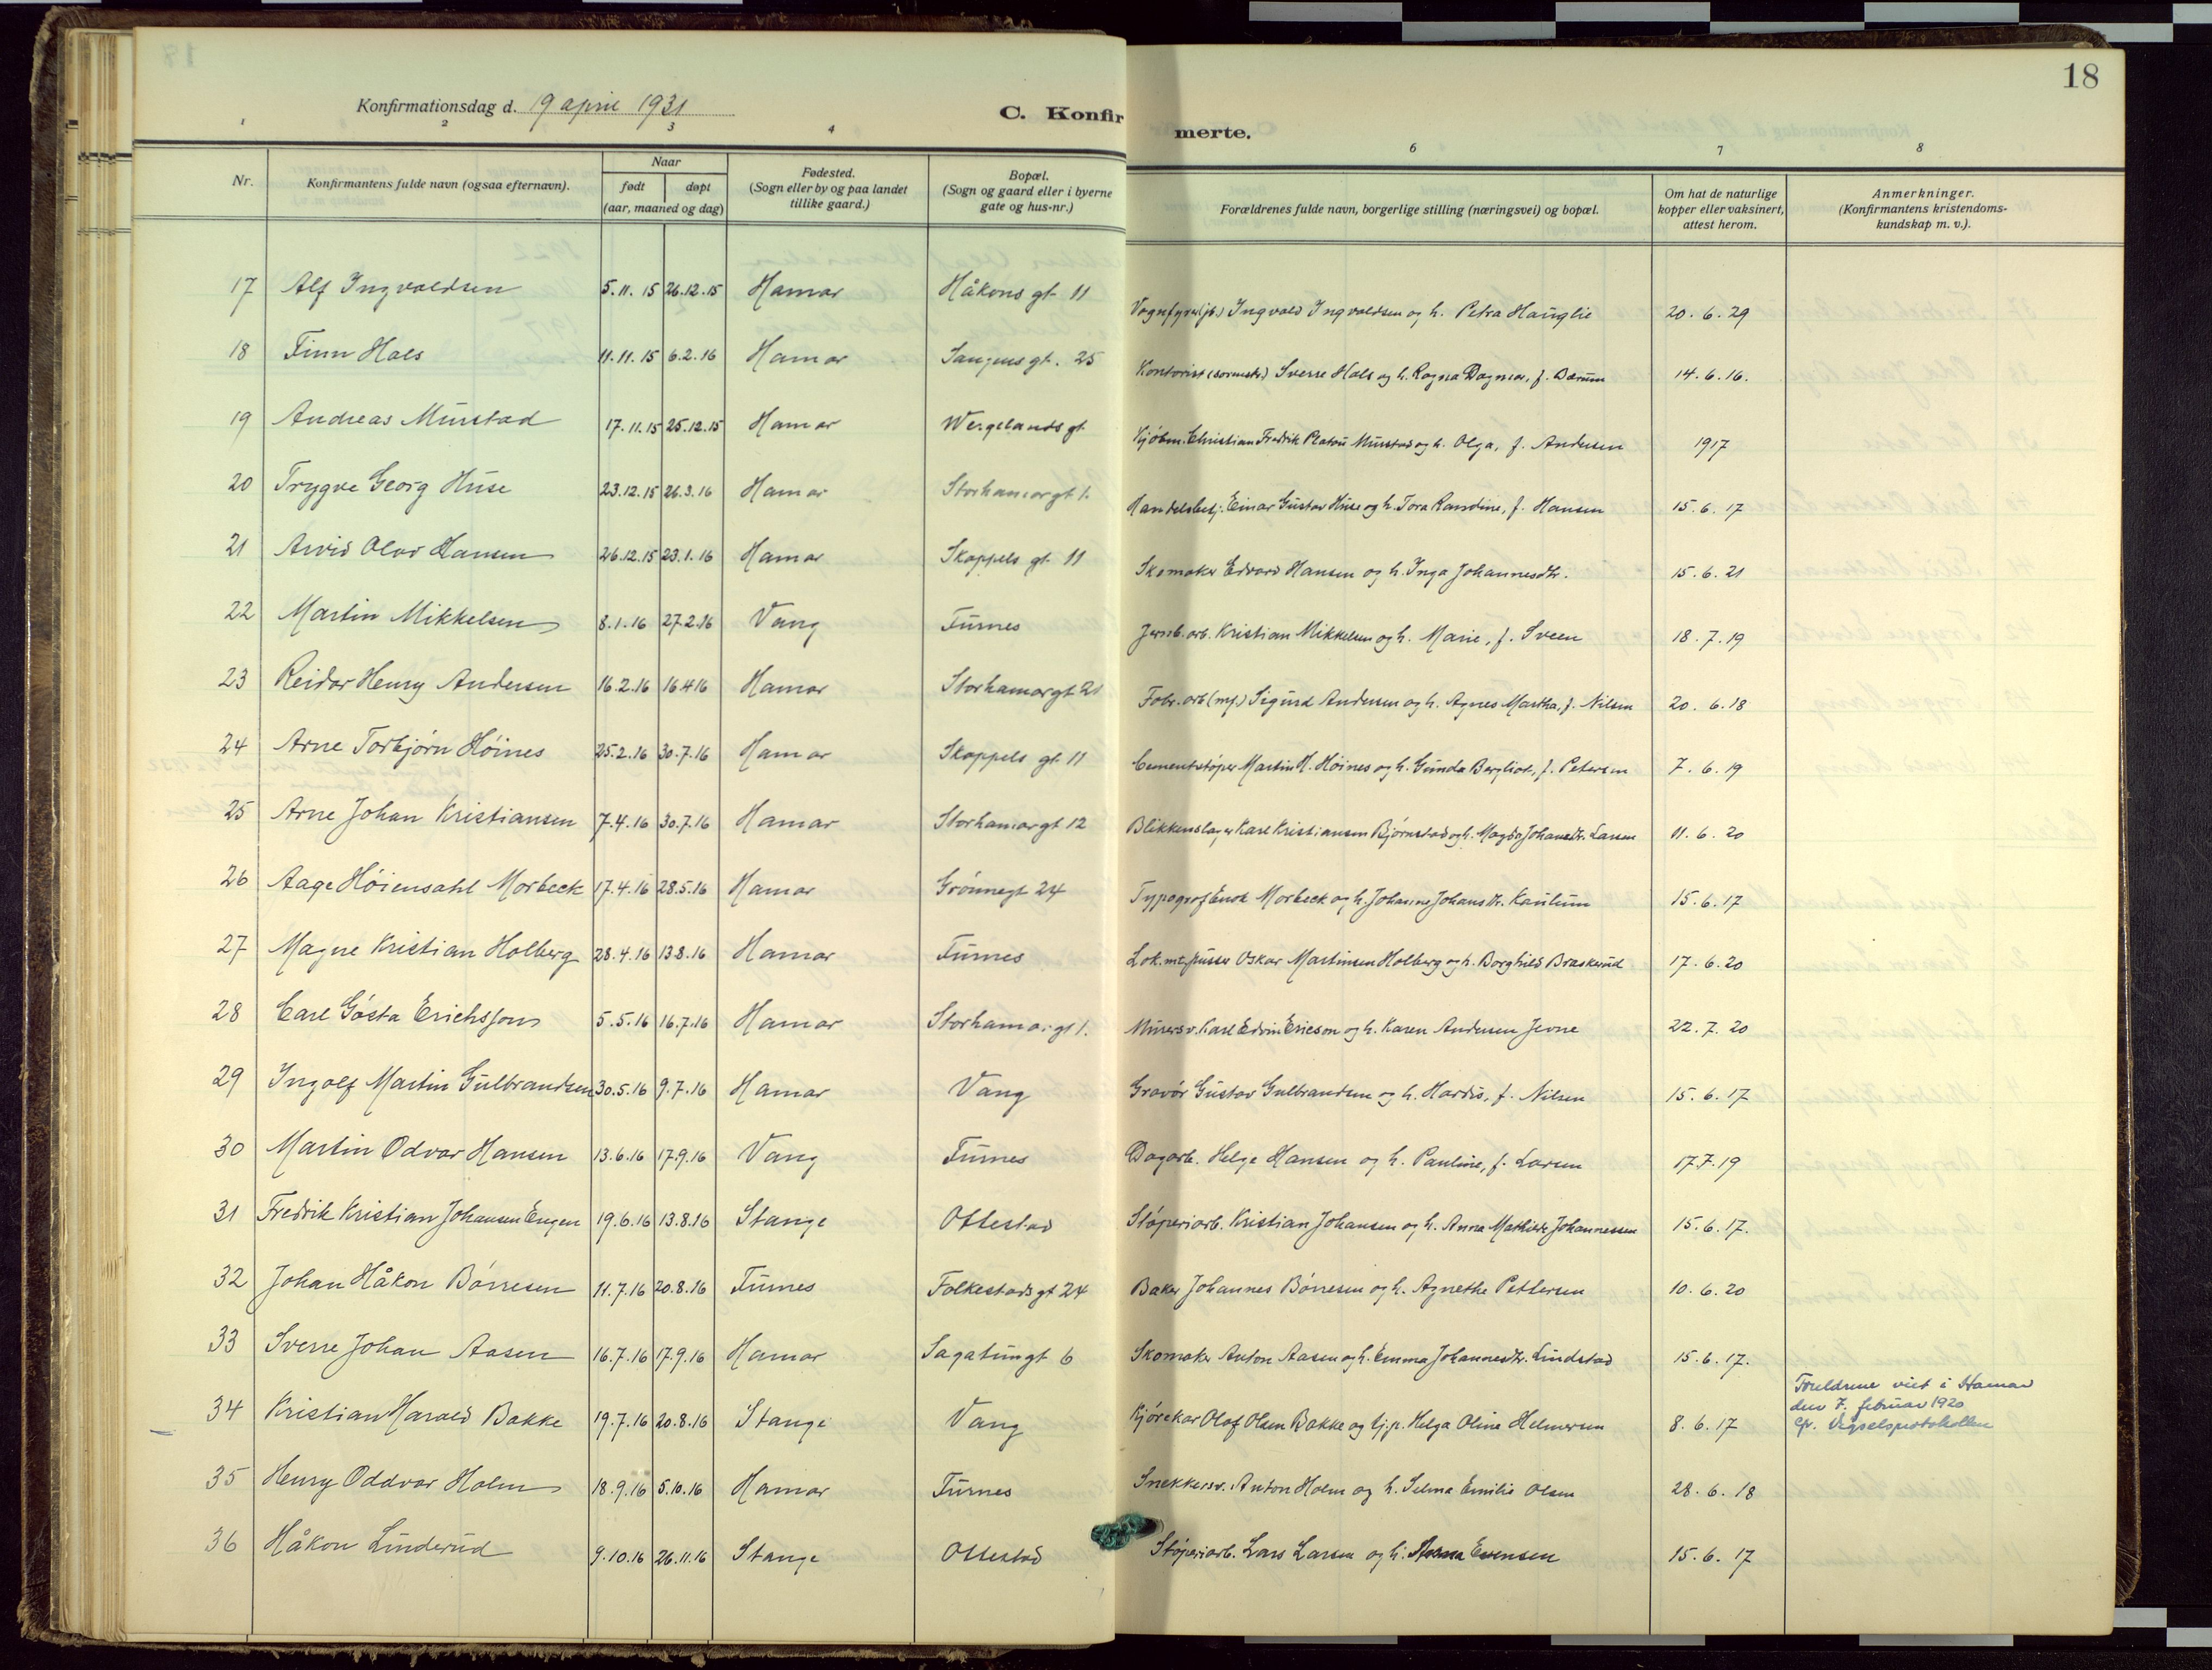 18
Konfirmationsdag d. 19 april 1931
C. Konfirmerte.
1 2 3 4 6 7 8
Nr. Konfirmantens fulde navn (ogsaa efternavn). Naar født døpt (aar, maaned og dag) Fødested. (Sogn eller by og paa landet tillike gaard.) Bopæl. (Sogn og gaard eller i byerne gate og hus-nr.) Forældrenes fulde navn, borgerlige stilling (næringsvei) og bopæl. Om hat de naturlige kopper eller vaksinert, attest herom. Anmerkninger. (Konfirmantens kristendomskundskap m. v.).
17 Alf Ingvaldsen 5.11.15 26.12.15 Hamar Håkons gt. 11 Vognfyrer (jb.) Ingvald Ingvaldsen og h. Petra Hauglie 20.6.29
18 Finn Hals 11.11.15 6.2.16 Hamar gt. 25 Kontorist Sverre Hals og h. Ragna Dagmar, f. Bærum 14.6.16.
19 Andreas Mustad 17.11.15 25.12.15 Hamar Wergelands gt Kjøbm. Christian Fredrik Platou Mustad og h. Olga, f. Andersen 1917
20 Trygve Georg Huse 23.12.15 26.3.16 Hamar Storhamargt 1. Handelsbetj. Einar Gustav Huse og h. Tora Randine, f. Hansen 15.6.17
21 Arvid Olav Hansen 26.12.15 23.1.16 Hamar Skappels gt. 11 Skomaker Edvard Hansen og h. Inga Johannesdtr. 15.6.21
22 Martin Mikkelsen 8.1.16 27.2.16 Vang Furnes Jernb. arb. Kristian Mikkelsen og h. Marie, f. Sveen 18.7.19
23 Reidar Henry Andersen 16.2.16 16.4.16 Hamar Storhamargt 21 Fabr. arb (my.) Sigurd Andersen og h. Agnes Martha, f. Nilsen 20.6.18
24 Arne Torbjørn Høines 25.2.16 30.7.16 Hamar Skappels gt. 11 Cementstøper Martin H. Høines og h. Gunda Bergliot, f. Petersen 7.6.19
25 Arne Johan Kristiansen 7.4.16 30.7.16 Hamar Storhamargt 12 Blikkenslager Karl Kristiansen Bjørnstad og h. Magda Johansdtr. Larsen 11.6.20
26 Aage Høiensahl Morbeck 17.4.16 28.5.16 Hamar Grønnegt 24 Typograf Enok Morbeck og h. Johanne Johansdtr. Kaulum 15.6.17
27 Magne Kristian Holberg 28.4.16 13.8.16 Hamar Furnes Lok.mt.pusser Oskar Martinsen Holberg og h. Borghild Braskerud 17.6.20
28 Carl Gösta Erichsson 5.5.16 16.7.16 Hamar Storhamargt 1. Murersv. Karl Edvin Ericson og h. Karen Andersen Jevne 22.7.20
29 Ingolf Martin Gulbrandsen 30.5.16 9.7.16 Hamar Vang Gravør Gustav Gulbrandsen og h. Hardis, f. Nilsen 15.6.17
30 Martin Odvar Hansen 13.6.16 17.9.16 Vang Furnes Dagarb. Helge Hansen og h. Pauline, f. Larsen 17.7.19
31 Fredrik Kristian Johansen Engen 19.6.16 13.8.16 Stange Ottestad Støperiarb. Kristian Johansen og h. Anna Mathilde Johannessen 15.6.17.
32 Johan Håkon Børresen 11.7.16 20.8.16 Furnes Folkestads gt 24 Baker Johannes Børresen og h. Agnethe Pettersen 10.6.20
33 Sverre Johan Aasen 16.7.16 17.9.16 Hamar Sagatungt 6 Skomaker Anton Aasen og h. Emma Johannesdtr. Lundstad 15.6.17.
34 Kristian Harald Bakke 19.7.16 20.8.16 Stange Vang Kjørekar Olaf Olsen Bakke og tj.p. Helga Oline Helmersen 8.6.17 Foreldrene viet i Hamar den 7. februar 1920 cfr. Vigselsprotokollen
35 Henry Oddvar Holm 18.9.16 5.10.16 Hamar Furnes Snekkersv. Anton Holm og h. Selma Emilie Olsen 28.6.18
36 Håkon Linderud 9.10.16 26.11.16 Stange Ottestad Støperiarb. Lars Larsen og h. Anna Evensen 15.6.17